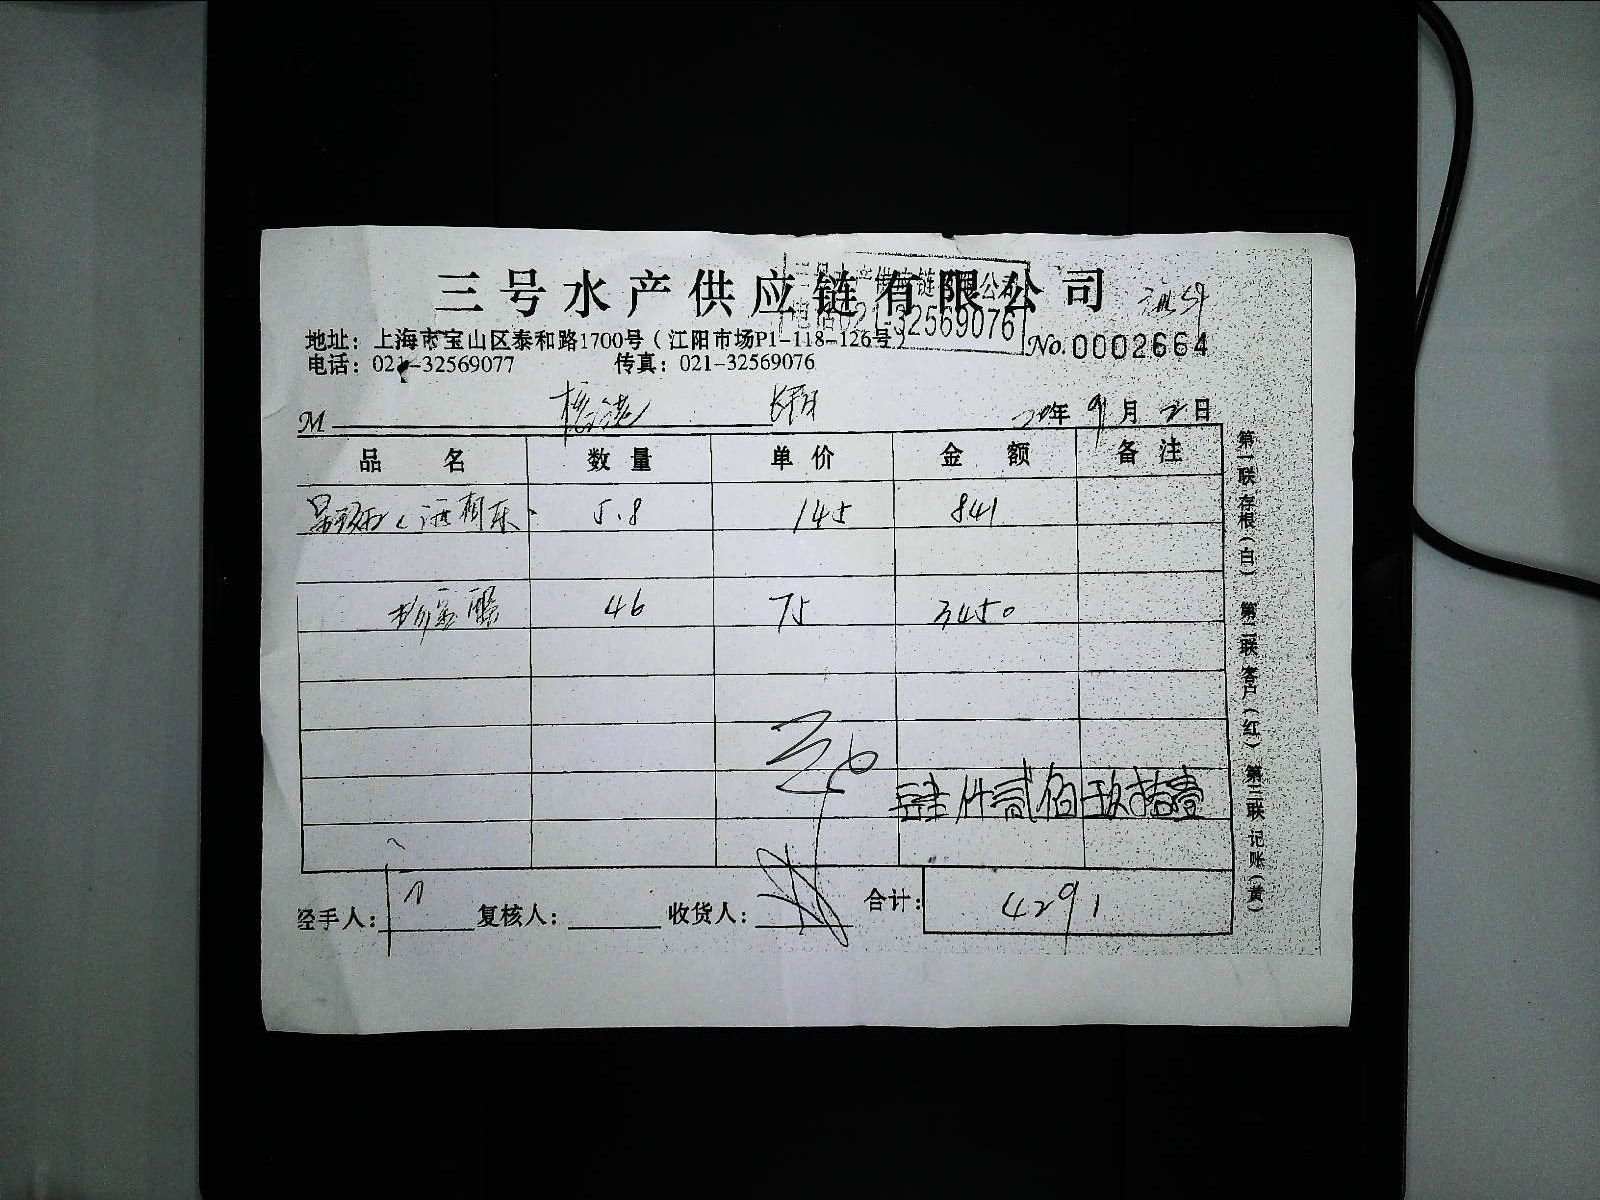 三号水产供应链有限公司
三号水产供应链有限公司
电话021-32569076
地址：上海市宝山区泰和路1700号（江阳市场P1-118-126号）
No.0002664
电话：021-32569077 传真：021-32569076
M 20年 9月 2日
品名 数量 单价 金额 备注
5.8 145 841
46 75 3450
肆仟贰佰玖拾壹
经手人： 复核人： 收货人： 合计： 4291
第一联 存根（白） 第二联 客户（红） 第三联 记账（黄）